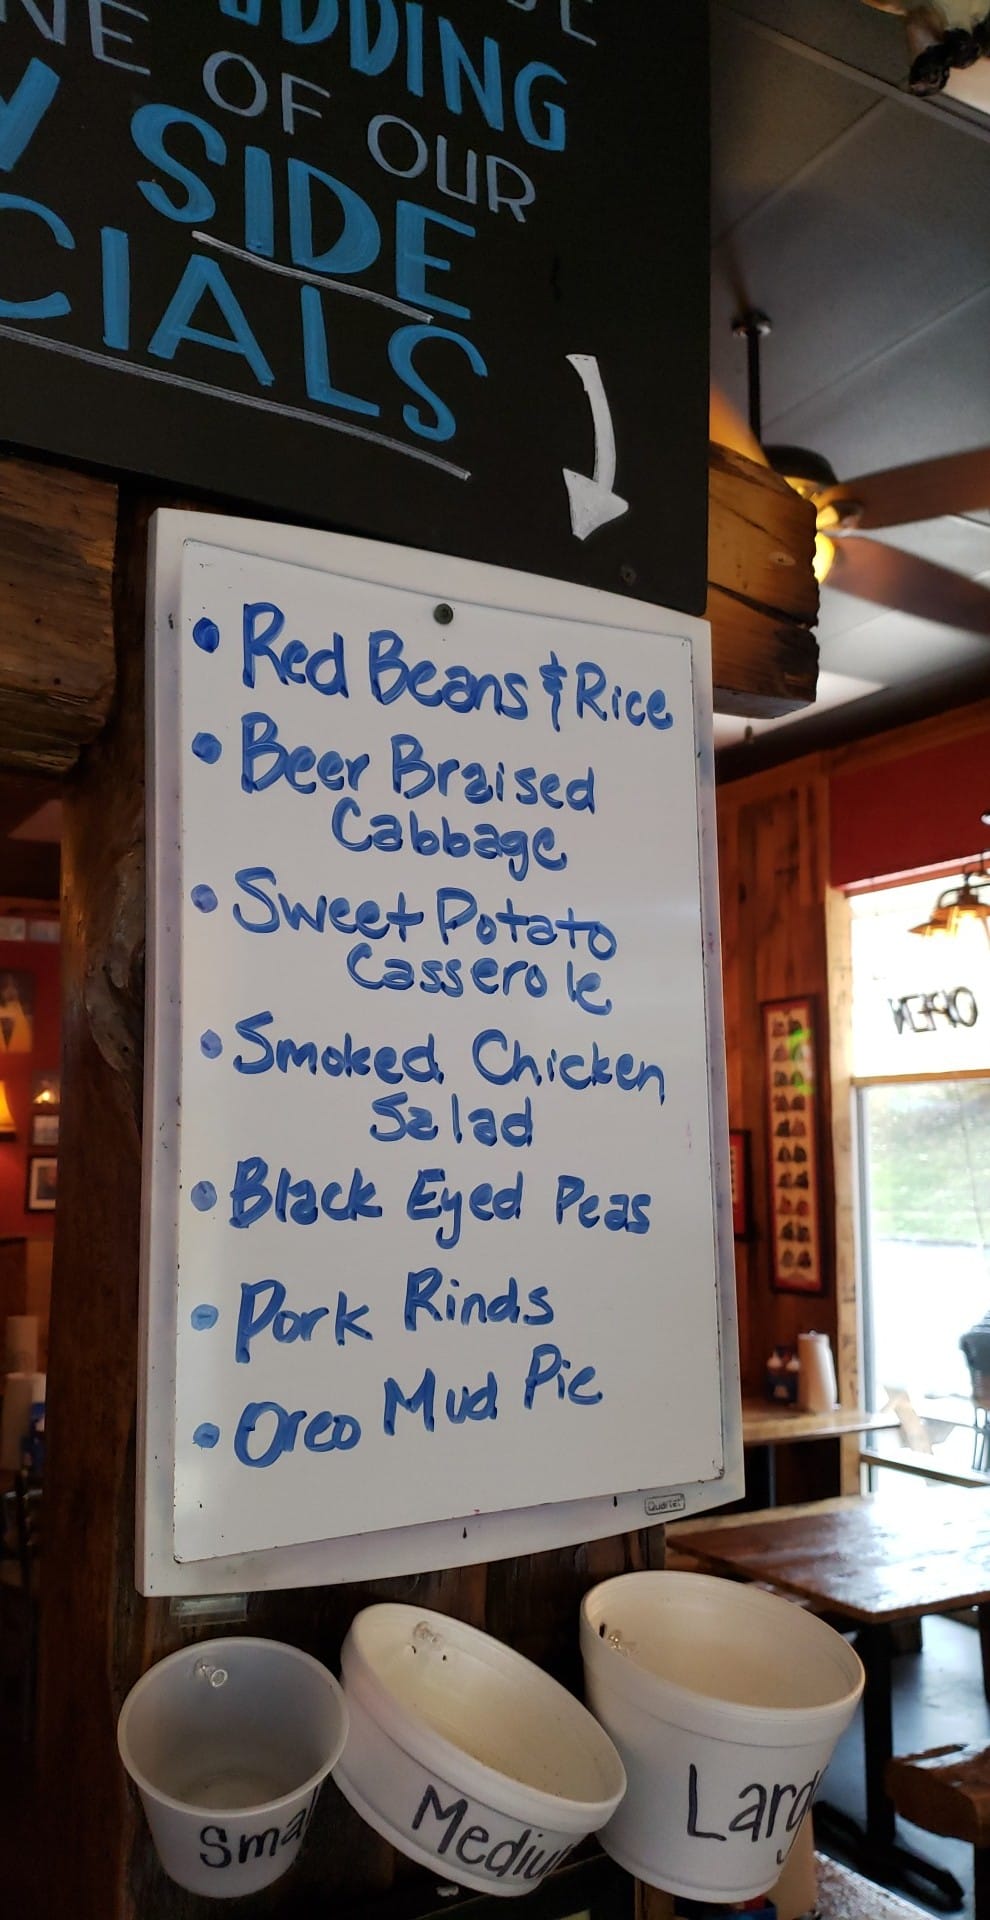 DDING
NE OF OUR
Y SIDE
CIALS
• Red Beans & Rice
• Beer Braised
Cabbage
• Sweet Potato
Casserole
• Smoked Chicken
Salad
• Black Eyed Peas
• Pork Rinds
• Oreo Mud Pie
Quartet
OPEN
Small
Medium
Large